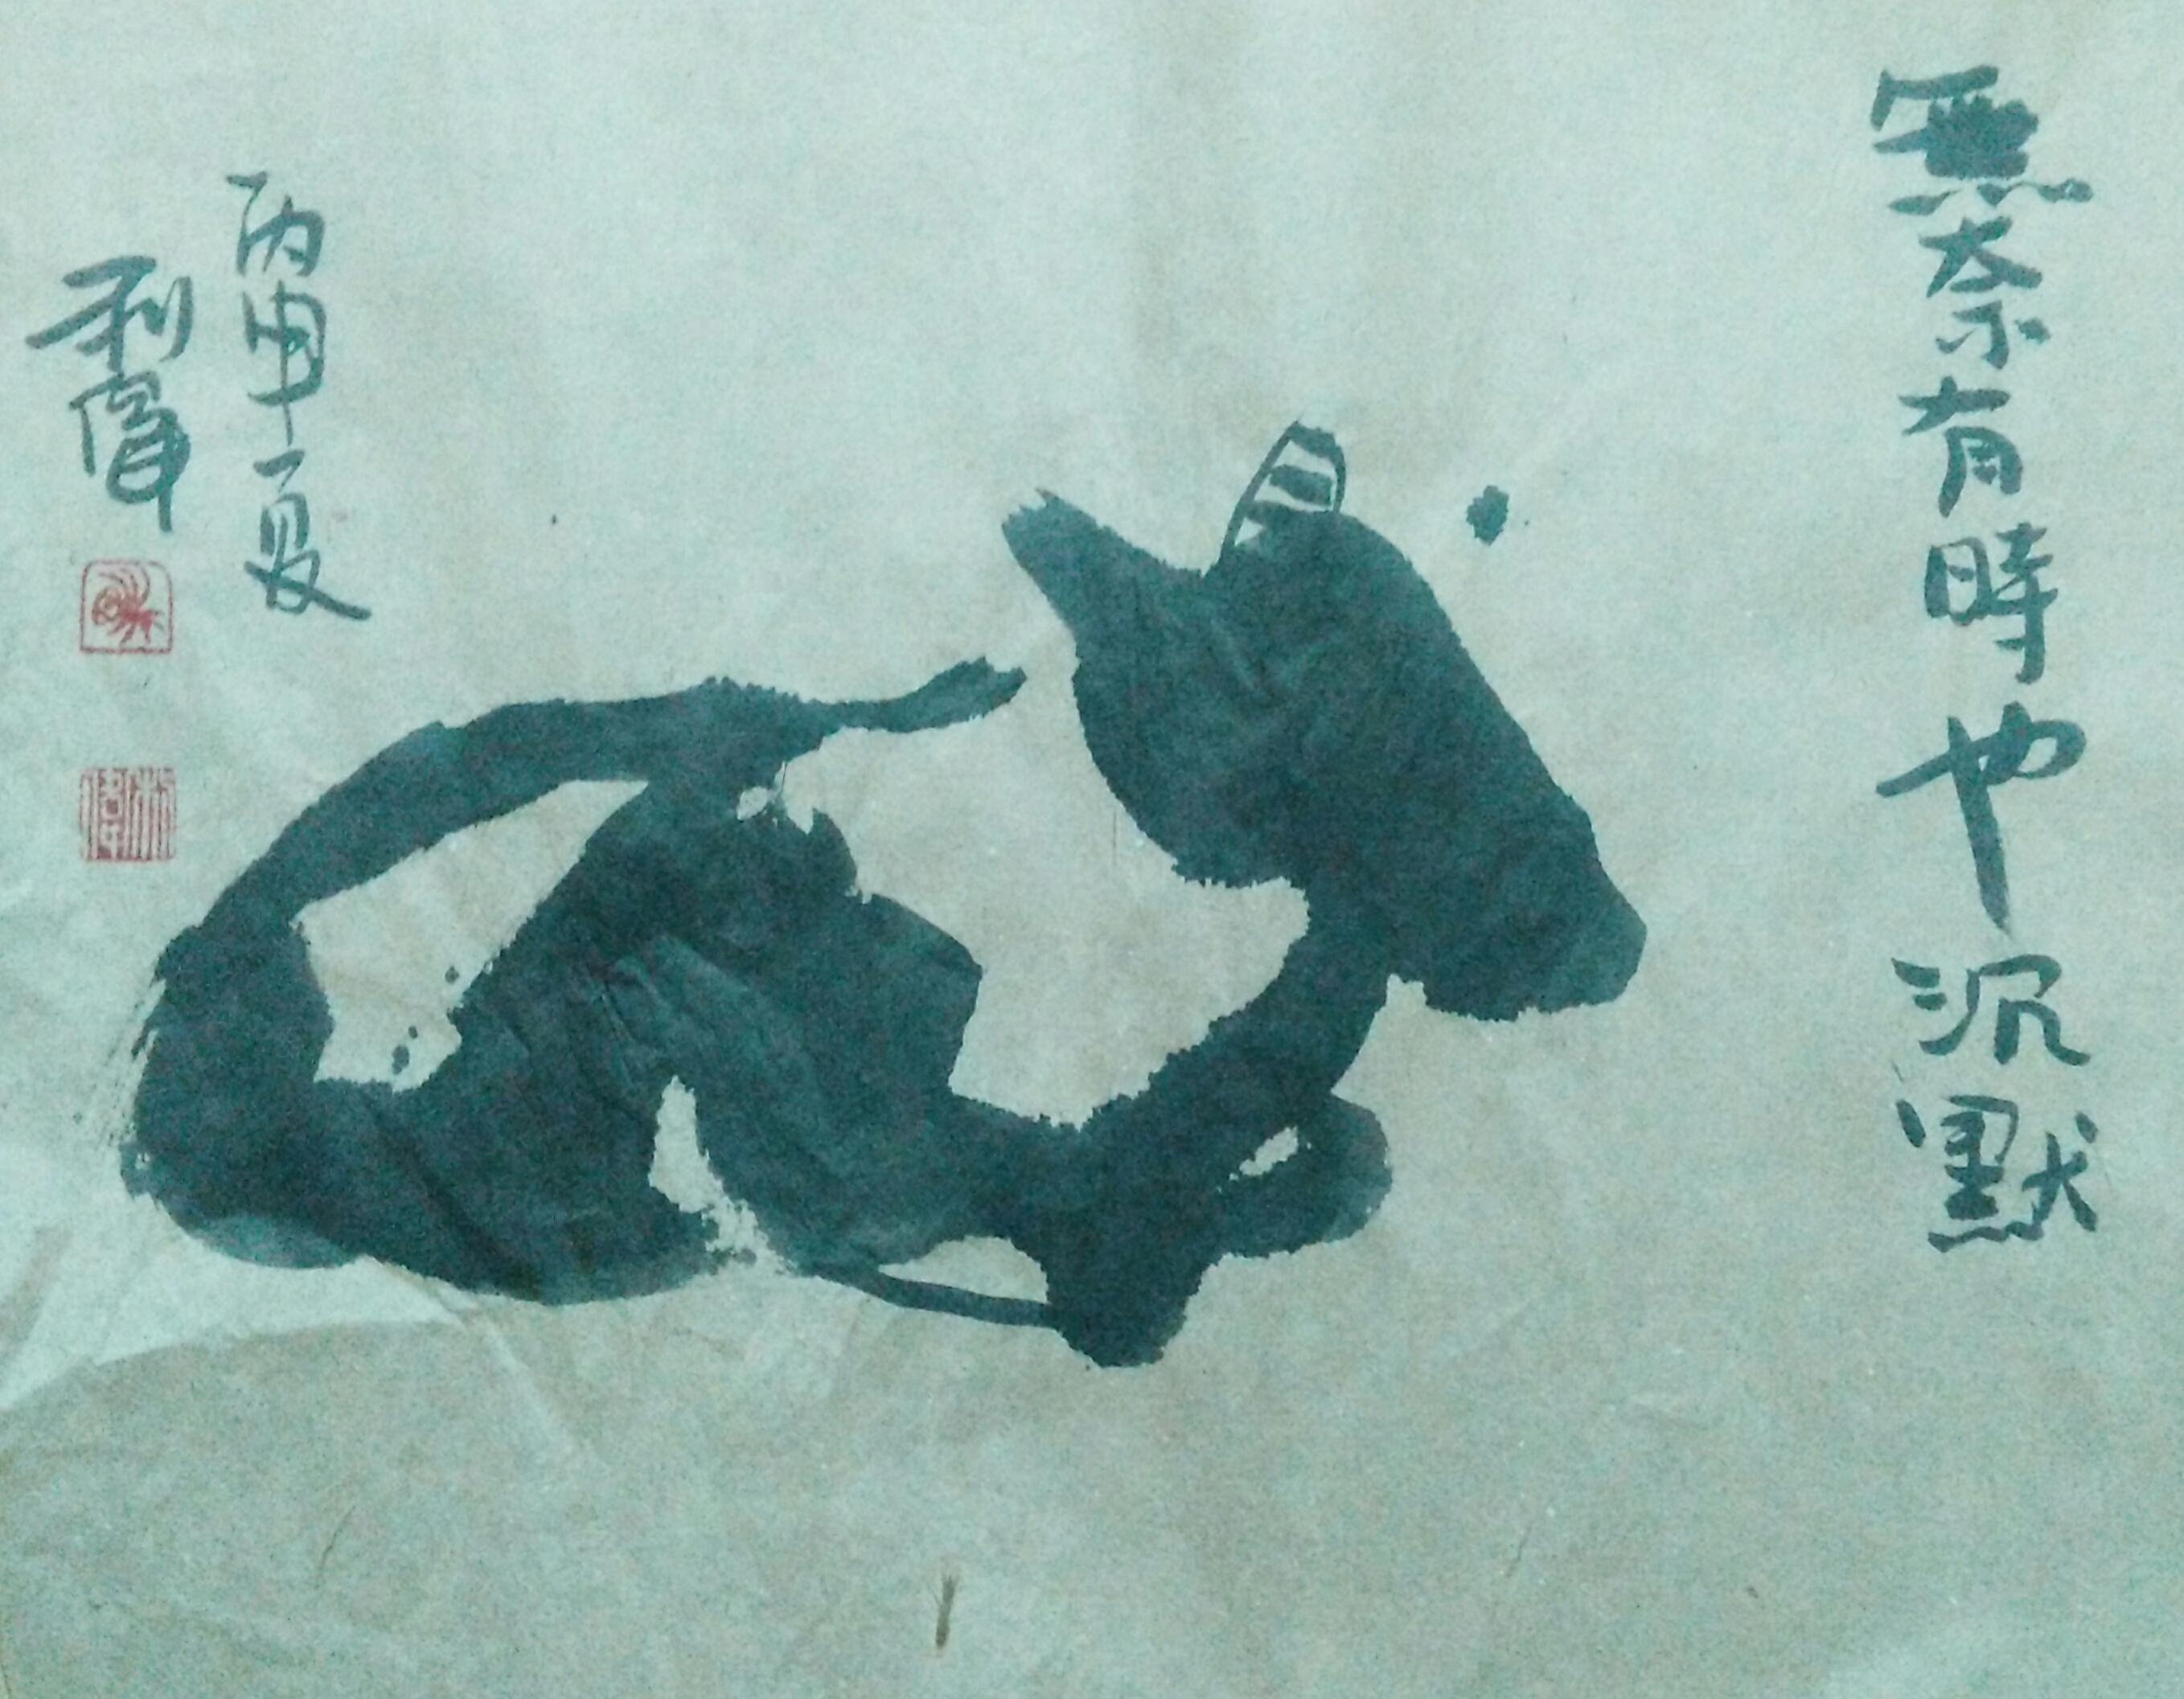 無奈有時也沉默
丙申夏
利軍